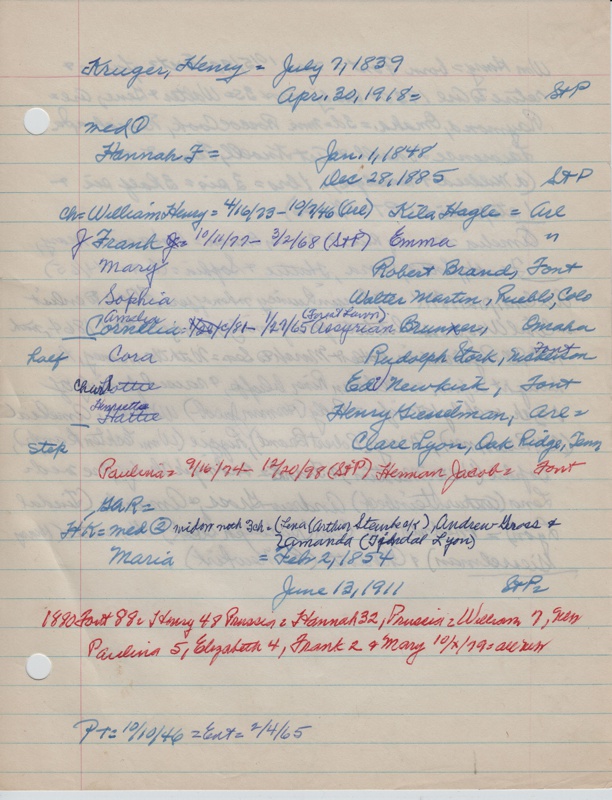 Kruger, Henry = July 7, 1839
Apr. 30, 1918 = St P
med ①
Hannah F = Jan. 1, 1848
Dec 28, 1885 St P
ch = William Henry = 4/16/73 - 10/7/46 (Arl) Hagle = Arl
J Frank J = 10/11/77 - 3/2/68 (StP) Emma "
Mary Robert Brand, Font
Sophia Walter Martin, Pueblo, Colo
Amelia (Forest Lawn)
Cornellia = /81 - 1/27/65 Assyrian Brunner, Omaha
half Cora Rudolph Stork, Nickerson Font
Charlottie Ed Newkirk, Font
Henrietta
Hattie Henry Giesselman, Arl =
step Clare Lyon, Oak Ridge, Tenn
Paulina = 9/16/74 - 12/20/98 (StP) Herman Jacob = Font
GAR =
HK = med ② widow with 3ch = (Lena (Arthur c/x), Andrew Gross &
Amanda ( Lyon)
Maria = Feb 2, 1854
June 13, 1911 St P =
1880 Font 88 = Henry 48 Prussia = Hannah 32, Prussia = William 7, New
Paulina 5, Elizabeth 4, Frank 2 & Mary 10/x/79 = all new
Pt = 10/10/46 = Ent = 2/4/65